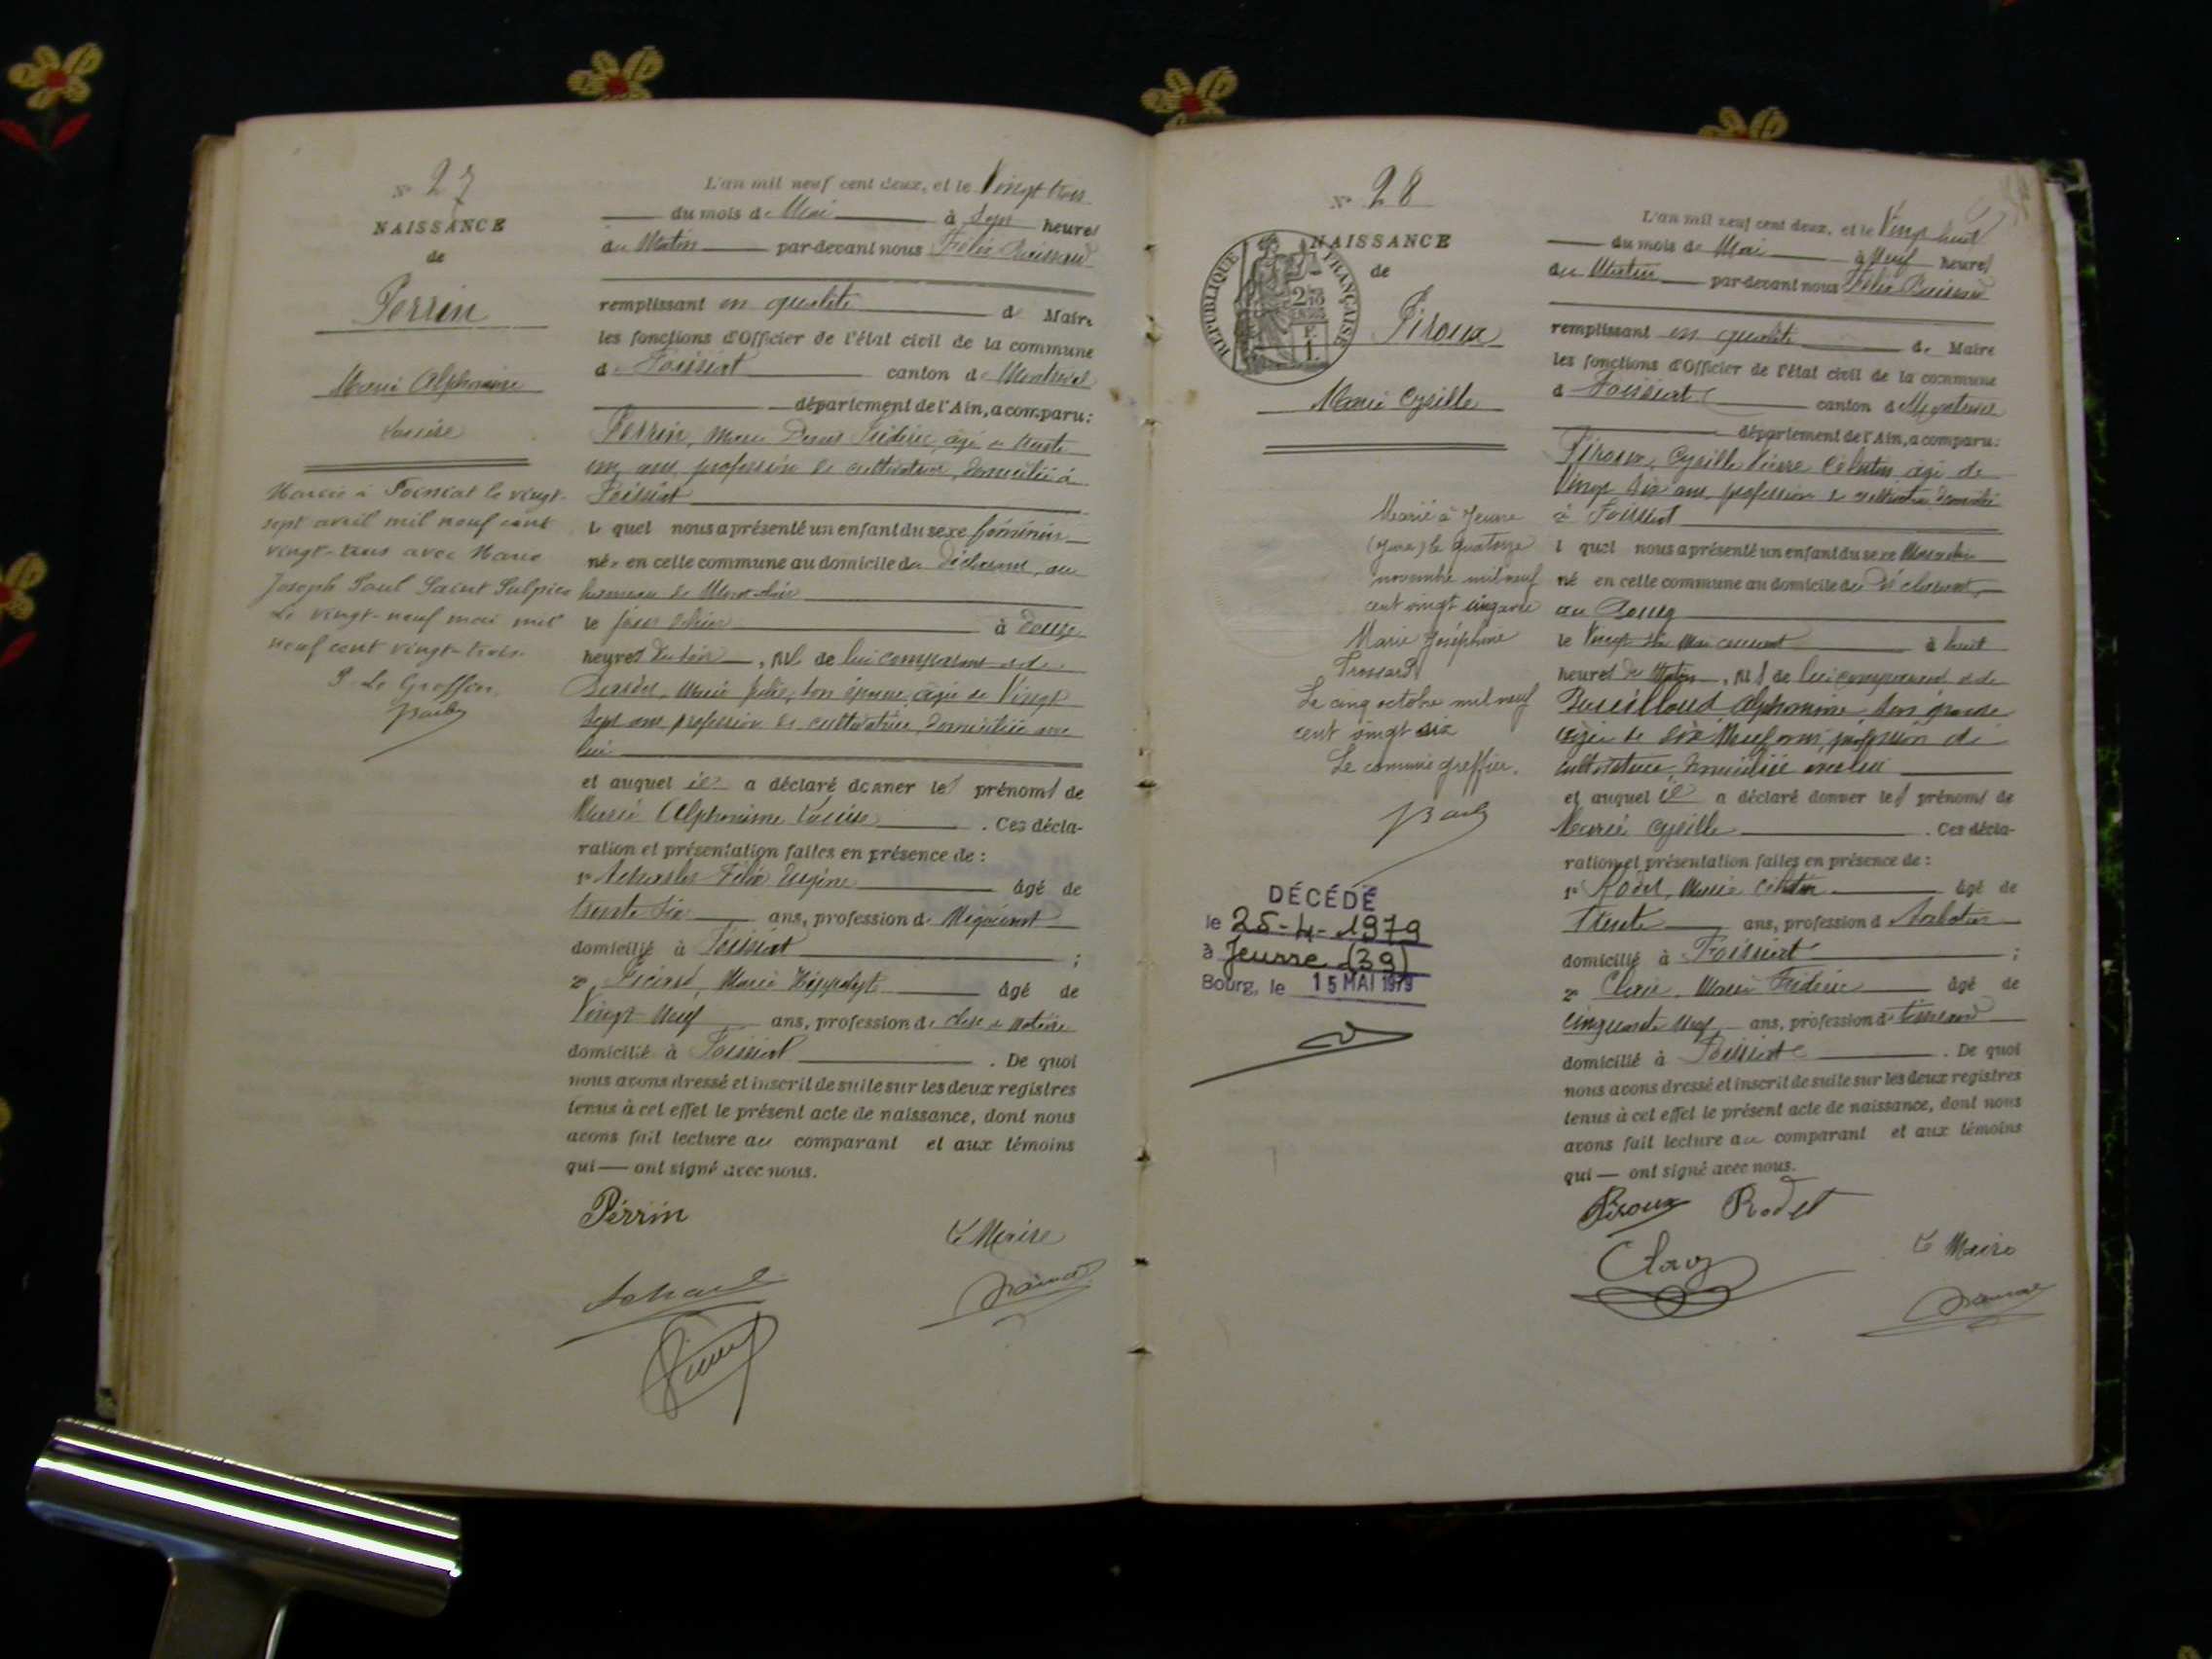 N° 27
NAISSANCE
de
Perrin
Marie Alphonsine
Mariée à Foissiat le vingt-
sept avril mil neuf cent
vingt-trois avec Marie
Joseph Paul Saint Sulpice
Le vingt-neuf mai mil
neuf cent vingt-trois.
L'an mil neuf cent deux, et le Vingt trois
du mois de Mai à Sept heures
du Matin par-devant nous Félix
remplissant en qualité de Maire
les fonctions d'Officier de l'état civil de la commune
de Foissiat canton de Montrevel
département de l'Ain, a comparu:
Perrin, Marie Denis Frédéric, âgé de trente
un ans, profession de cultivateur, domicilié à
Foissiat
lequel nous a présenté un enfant du sexe féminin
née en cette commune au domicile du déclarant, au
hameau de
le jour d'hier à douze
heures du soir, fille de lui comparant et de
Marie son épouse, âgée de Vingt
Sept ans, profession de cultivatrice, domiciliée avec
lui
et auquel il a déclaré donner les prénoms de
Marie Alphonsine . Ces décla-
ration et présentation faites en présence de :
1° Félix Eugène âgé de
trente six ans, profession de Négociant
domicilié à Foissiat ;
2° Marie Hippolyte âgé de
Vingt Neuf ans, profession de clerc de Notaire
domicilié à Foissiat . De quoi
nous avons dressé et inscrit de suite sur les deux registres
tenus à cet effet le présent acte de naissance, dont nous
avons fait lecture au comparant et aux témoins
qui — ont signé avec nous.
Pérrin
Le Maire
N° 28
NAISSANCE
de
RÉPUBLIQUE FRANÇAISE
Piroux
Marie Cyrille
Marié à Jeurre
(Jura) le quatorze
novembre mil neuf
cent vingt cinq avec
Marie Joséphine
Le cinq octobre mil neuf
cent vingt six
Le commis greffier,
DÉCÉDÉ
le 25-4-1979
à Jeurre (39)
Bourg, le 15 MAI 1979
L'an mil neuf cent deux, et le Vingt huit
du mois de Mai à Neuf heures
du Matin par-devant nous Félix
remplissant en qualité de Maire
les fonctions d'Officier de l'état civil de la commune
de Foissiat canton de Montrevel
département de l'Ain, a comparu:
Piroux, Cyrille Pierre Célestin âgé de
Vingt Six ans, profession de cultivateur domicilié
à Foissiat
lequel nous a présenté un enfant du sexe Masculin
né en cette commune au domicile du déclarant,
au Bourg
le Vingt six Mai courant à huit
heures du Matin, fils de lui comparant et de
Alphonsine son épouse
âgée de Dix Neuf ans, profession de
cultivatrice, domiciliée avec lui
et auquel il a déclaré donner les prénoms de
Marie Cyrille . Ces décla-
ration et présentation faites en présence de :
1° Rodet, Marie Célestin âgé de
Trente ans, profession de Sabotier
domicilié à Foissiat ;
2° Marie Frédéric âgé de
cinquante Neuf ans, profession de tisserand
domicilié à Foissiat . De quoi
nous avons dressé et inscrit de suite sur les deux registres
tenus à cet effet le présent acte de naissance, dont nous
avons fait lecture au comparant et aux témoins
qui — ont signé avec nous.
Piroux Rodet
Le Maire